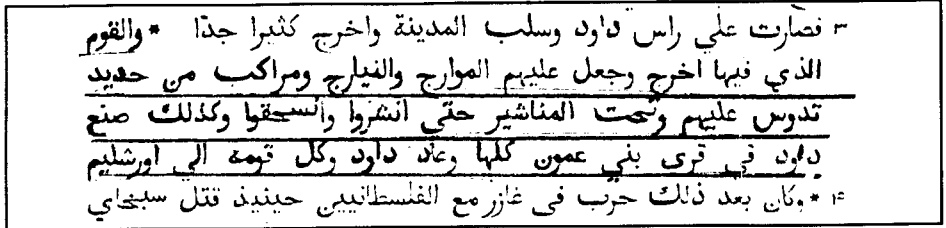 ٣ فصارت علي راس داود وسلب المدينة واخرج كثيرا جدا * والقوم
الذي فيها اخرج وجعل عليهم الموارج والفيارج ومراكب من حديد
تدوس عليهم وتحت المناشير حتي انشزوا وانسحقوا وكذلك صنع
داود في قرى بني عمون كلها وعاد داود وكل قومه الي اورشليم
۴ * وكان بعد ذلك حرب في غازر مع الفلسطانيين حينيذ قتل سبخاي